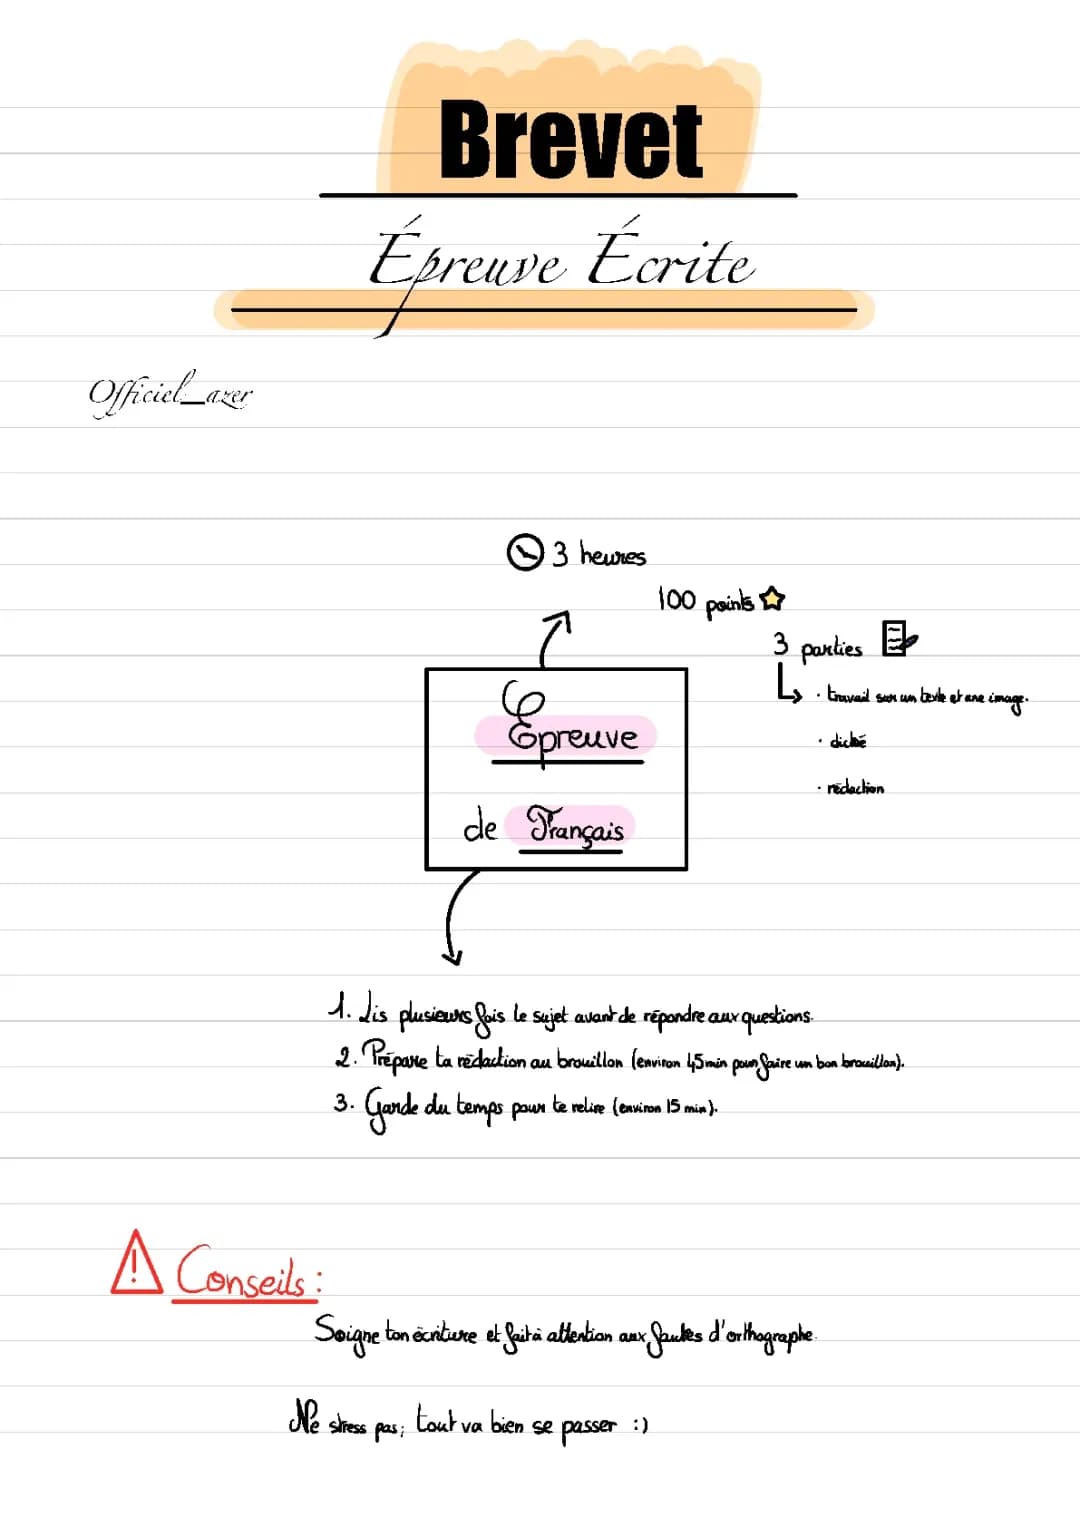 Brevet
Épreuve Écrite
Officiel_azer
3 heures
100 points
3 parties
· travail sur un texte et une image.
· dictée
· rédaction
Epreuve
de Français
1. Lis plusieurs fois le sujet avant de répondre aux questions.
2. Prépare ta rédaction au brouillon (environ 45 min pour faire un bon brouillon).
3. Garde du temps pour te relire (environ 15 min).
Conseils :
Soigne ton écriture et fait à attention aux fautes d'orthographe.
Ne stress pas, tout va bien se passer :)